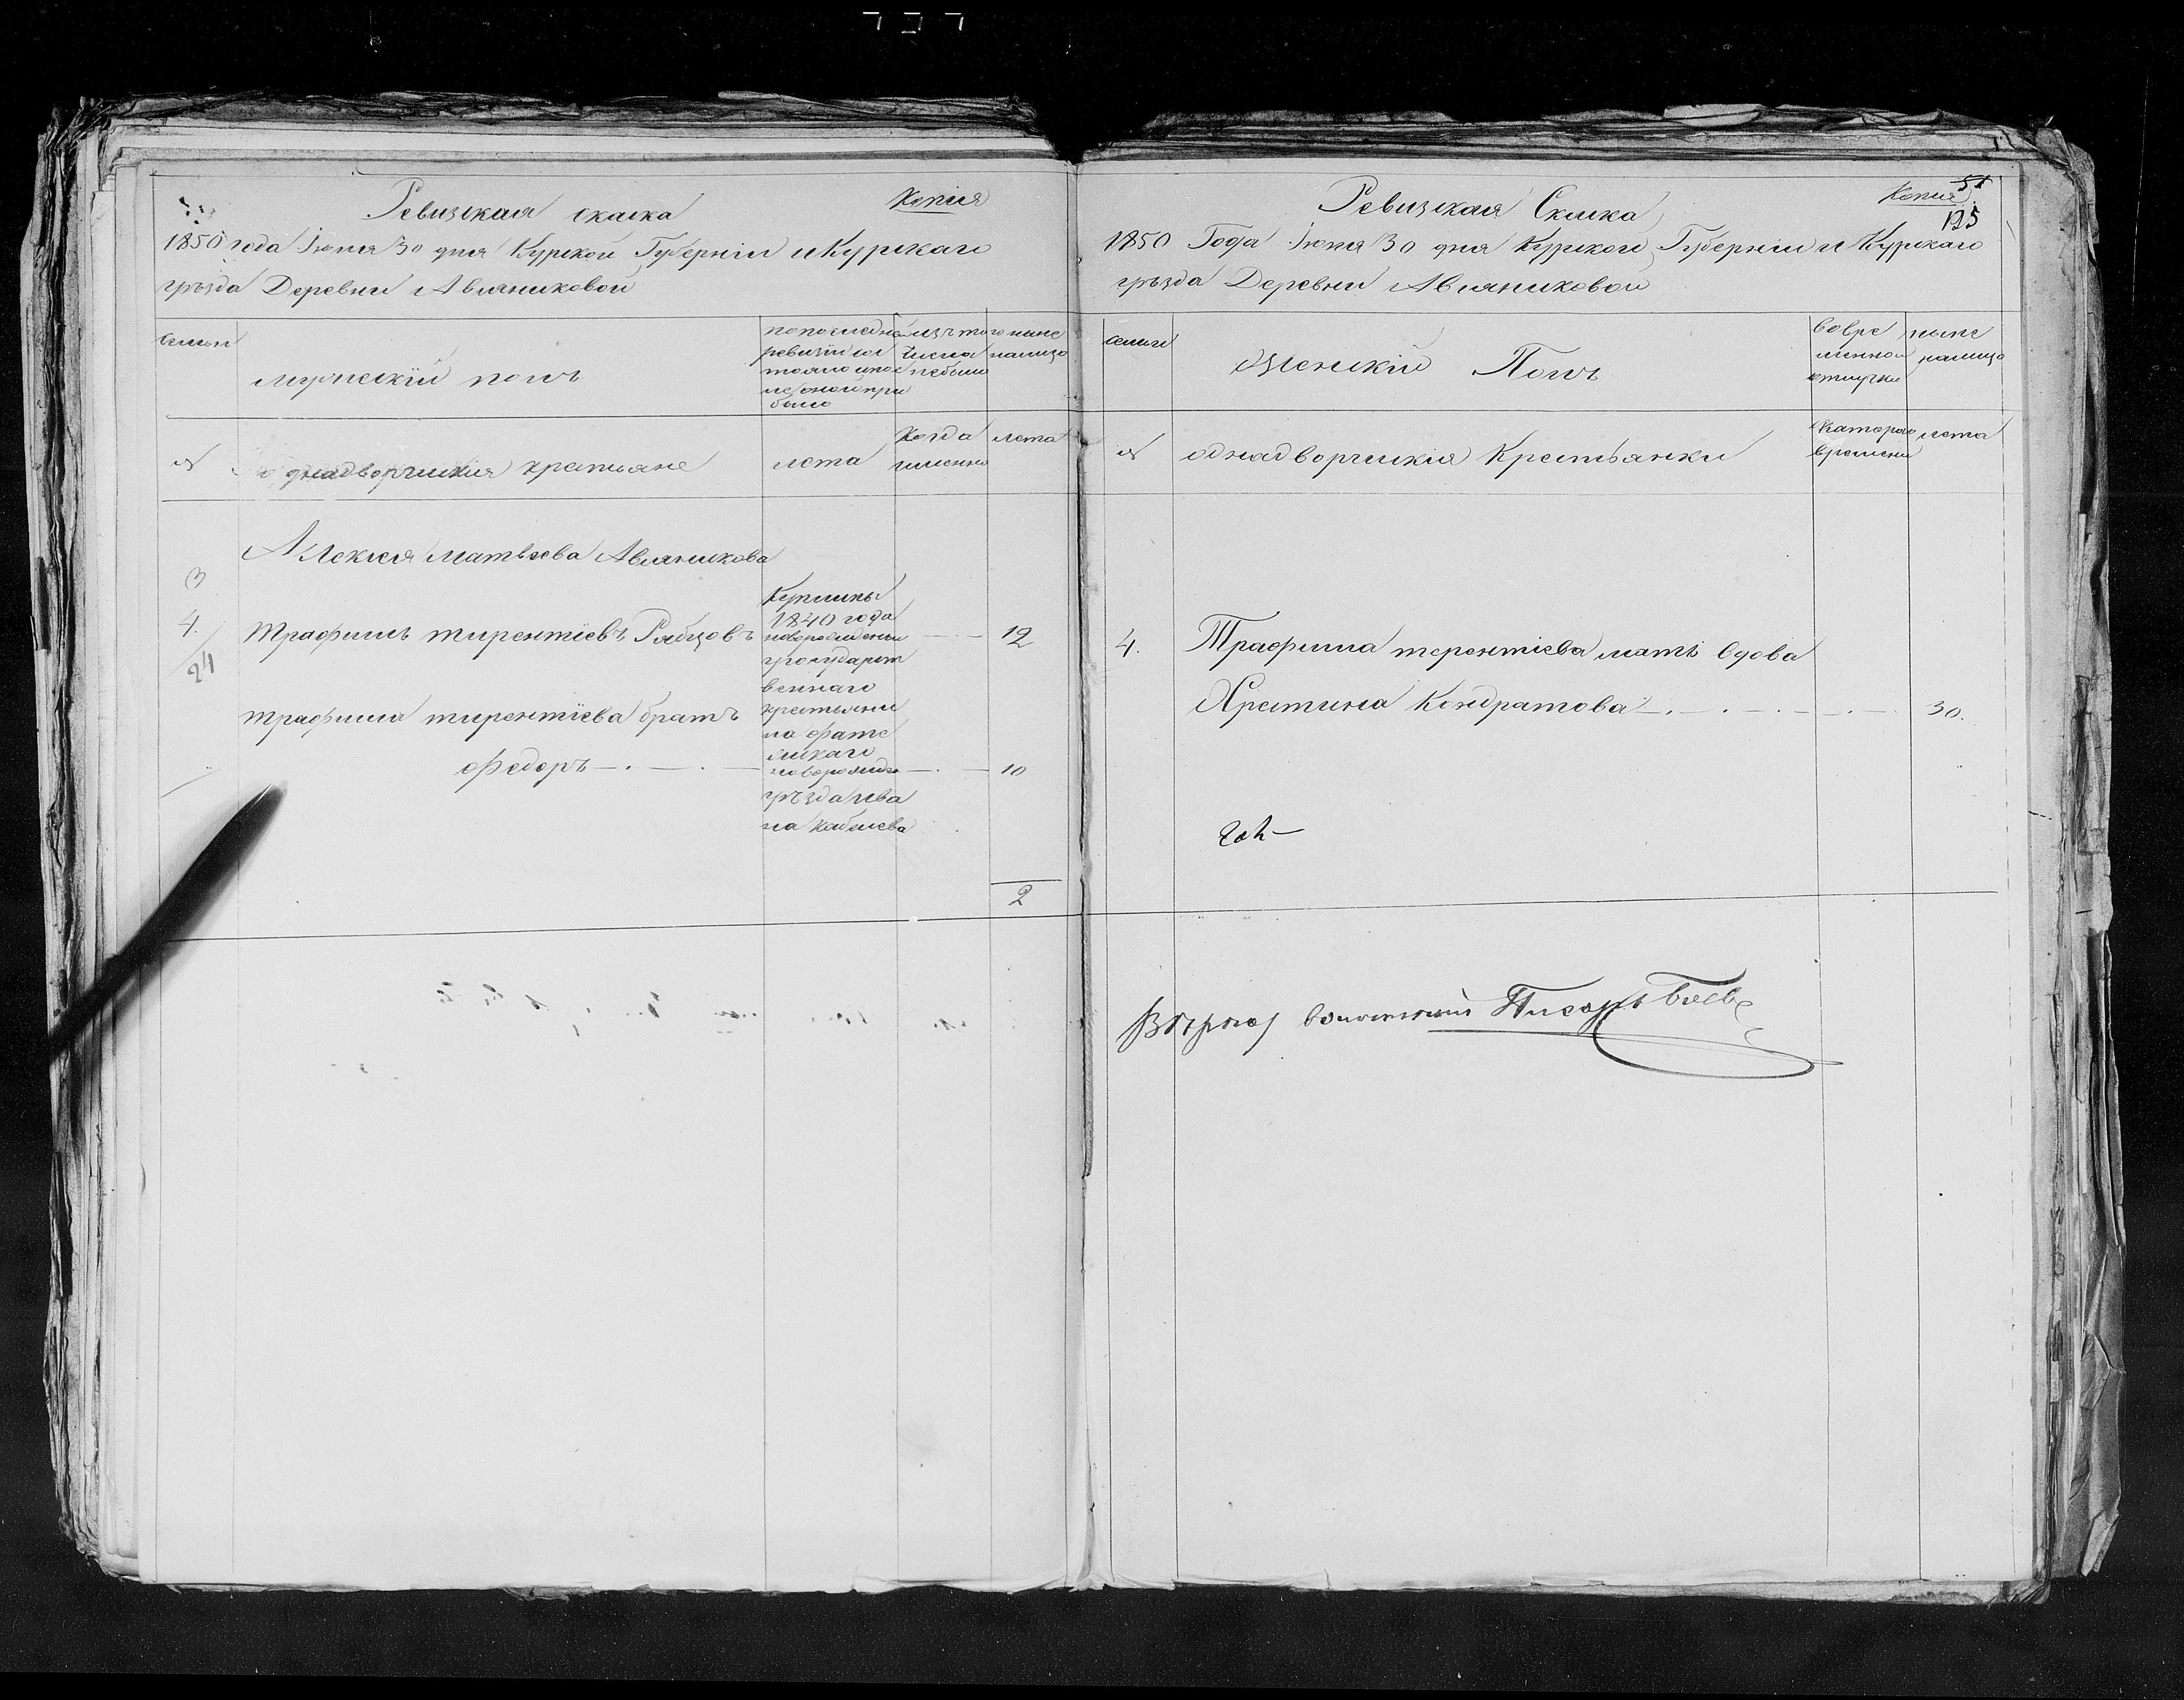 Ревизская скаска Копия
1850 года Июня 30 дня Курской Губернiи и Курскаго
уезда Деревни Авсяниковой
семьи
мужескiй полъ
попоследней
ревизiи со
стояло и пос
ле оной при
было
изъ того
числа
небыли
ныне
налицо
№
однадворческия крестьяне
лета
когда
именно
лета
Алексея Матвеева Авсяникова
3
4.
24
Трафимъ тирентiевъ Рябцовъ
12
Куплины
1840 года
новорожденны
государст
веннаго
крестьяни
на фате
жскаго
новорожде
уезда Ива
на Кабелева
трафима тирентiева братъ
федоръ
10
2
Ревизская Скаска Копия
51
125
1850 Года Июня 30 дня Курской Губернiи и Курскаго
уезда Деревни Авсяниковой
семьи
Женскiй Полъ
вовре
менной
отлучки
ныне
налицо
№
однадворческия Крестьянки
каторого
времени
лета
4. Трафима терентiева мать вдова
Хрестина Кондратова 30.
Вѣрно волостной Писарь